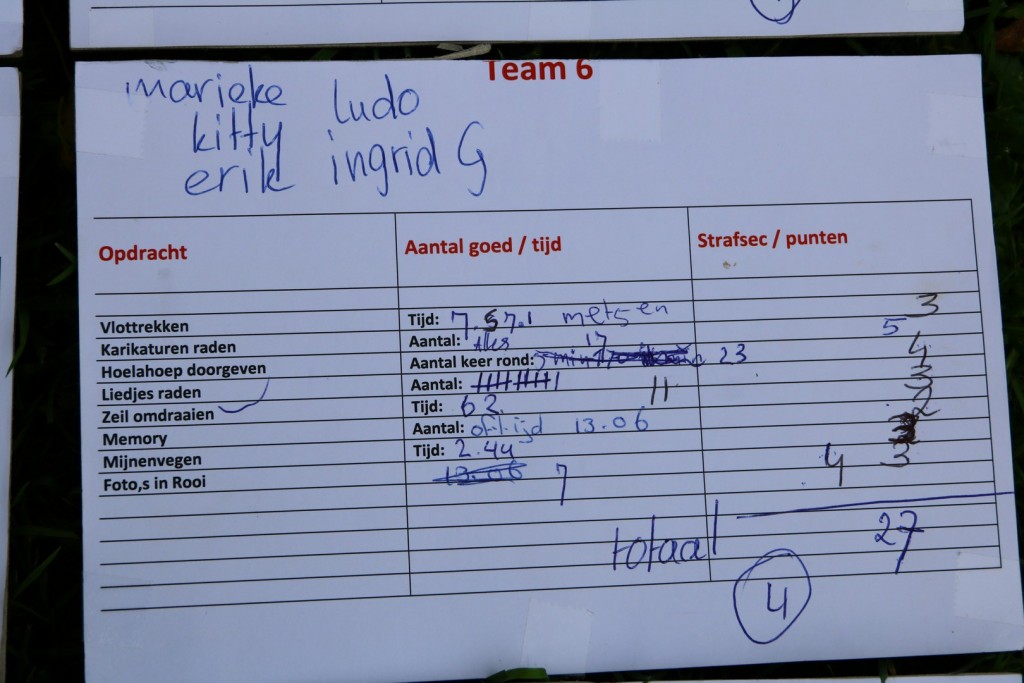 Team 6
marieke ludo
kitty
erik ingrid G
Opdracht Aantal goed / tijd Strafsec / punten
Vlottrekken Tijd: 7.57.1 metsen 3
Karikaturen raden Aantal: Alles 17 5
Hoelahoep doorgeven Aantal keer rond: 23 4
Liedjes raden Aantal: 11 3
Zeil omdraaien Tijd: 62 2
Memory Aantal: of tijd 13.06
Mijnenvegen Tijd: 2.44 4 3
Foto,s in Rooi 13.06 7
totaal 27
4